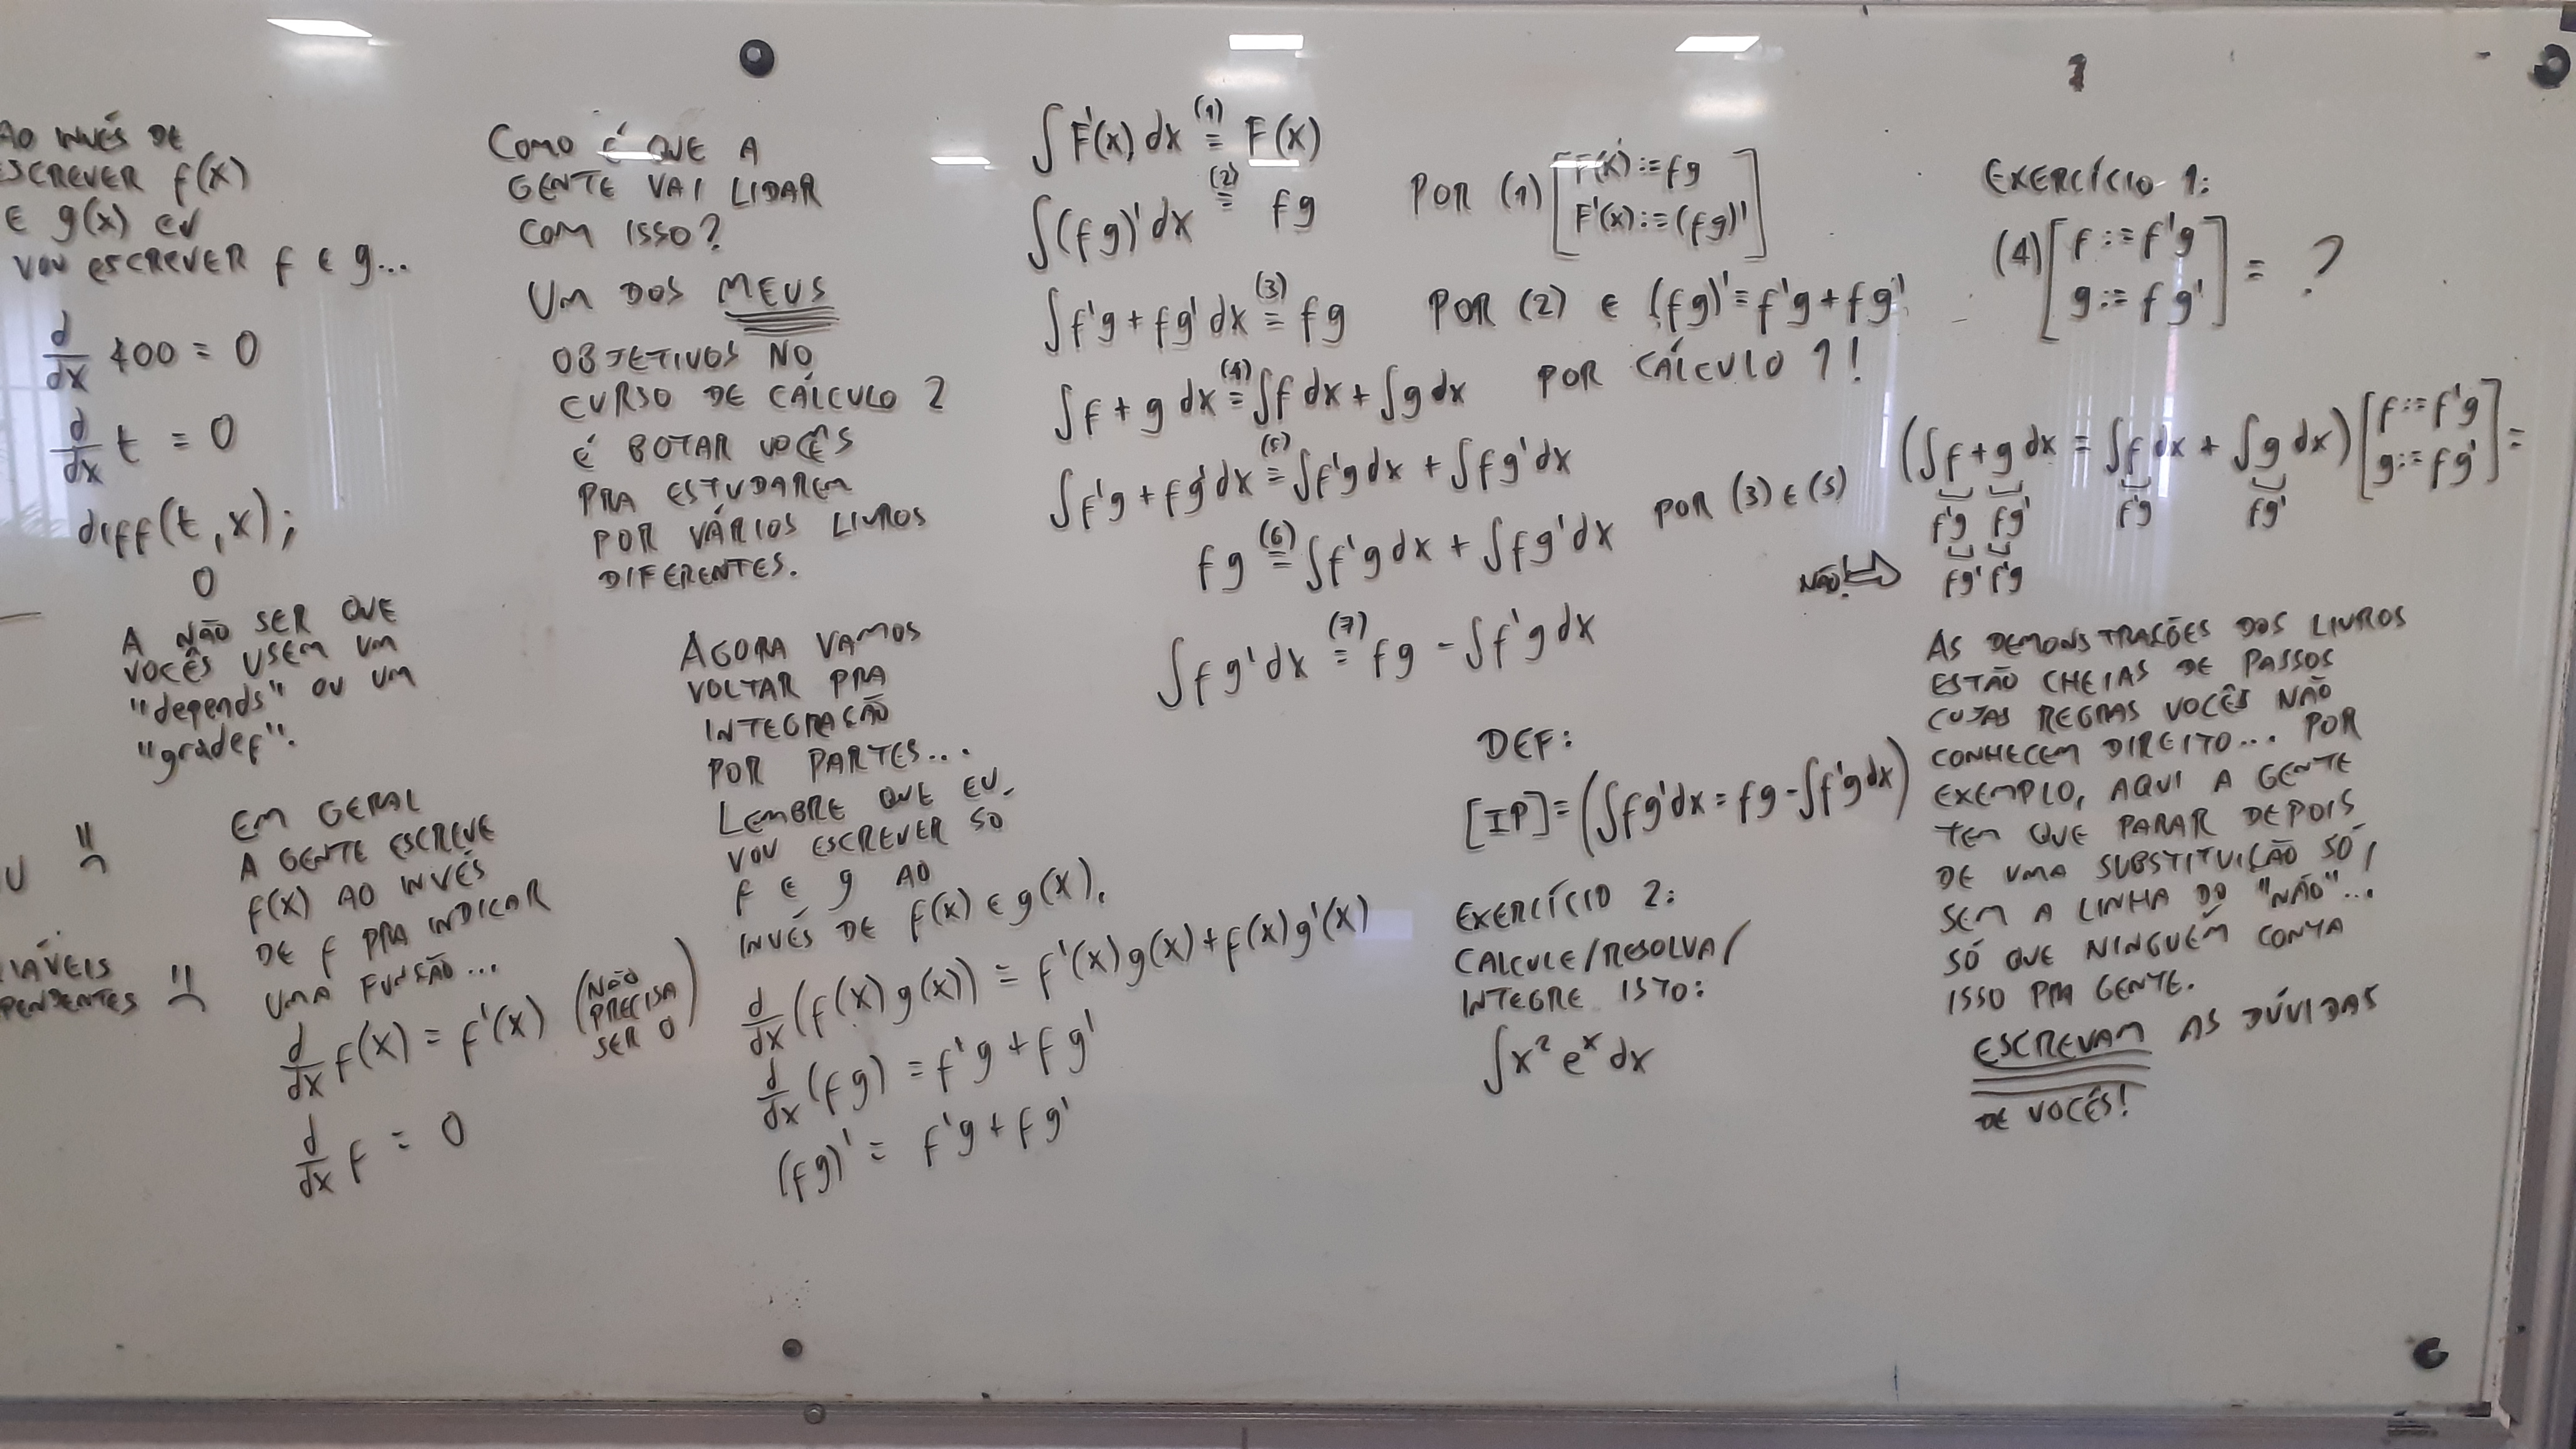 AO INVÉS DE
ESCREVER f(x)
E g(x) EU
VOU ESCREVER f E g...
d/dx 400 = 0
d/dx t = 0
diff(t,x);
0
A NÃO SER QUE
VOCÊS USEM UM
"depends" OU UM
"gradef".
EM GERAL
A GENTE ESCREVE
f(x) AO INVÉS
DE f PRA INDICAR
UMA FUNÇÃO...
d/dx f(x) = f'(x) (NÃO PRECISA SER 0)
d/dx f = 0
COMO É QUE A
GENTE VAI LIDAR
COM ISSO?
UM DOS MEUS
OBJETIVOS NO
CURSO DE CÁLCULO 2
É BOTAR VOCÊS
PRA ESTUDAREM
POR VÁRIOS LIVROS
DIFERENTES.
AGORA VAMOS
VOLTAR PRA
INTEGRAÇÃO
POR PARTES...
LEMBRE QUE EU
VOU ESCREVER SÓ
f E g AO
INVÉS DE f(x) E g(x).
d/dx (f(x)g(x)) = f'(x)g(x)+f(x)g'(x)
d/dx (fg) = f'g + fg'
(fg)' = f'g + fg'
∫F'(x) dx =(1) F(x)
∫(fg)' dx =(2) fg POR (1) [F(x):=fg
F'(x):=(fg)']
∫f'g + fg' dx =(3) fg POR (2) E (fg)' = f'g + fg'
∫f + g dx =(4) ∫f dx + ∫g dx POR CÁLCULO 1!
∫f'g + fg' dx =(5) ∫f'g dx + ∫fg' dx
fg =(6) ∫f'g dx + ∫fg' dx POR (3) E (5)
∫fg' dx =(7) fg - ∫f'g dx
DEF:
[IP] = (∫fg' dx = fg - ∫f'g dx)
EXERCÍCIO 2:
CALCULE/RESOLVA/
INTEGRE ISTO:
∫x² eˣ dx
EXERCÍCIO 1:
(4) [f := f'g
g := fg'] = ?
(∫f + g dx = ∫f dx + ∫g dx) [f := f'g
g := fg'] =
f'g fg' f'g fg'
NÃO! ⇒ fg' f'g
AS DEMONSTRAÇÕES DOS LIVROS
ESTÃO CHEIAS DE PASSOS
CUJAS REGRAS VOCÊS NÃO
CONHECEM DIREITO... POR
EXEMPLO, AQUI A GENTE
TEM QUE PARAR DEPOIS
DE UMA SUBSTITUIÇÃO SÓ,
SEM A LINHA DO "NÃO"...
SÓ QUE NINGUÉM CONTA
ISSO PRA GENTE.
ESCREVAM AS DÚVIDAS
DE VOCÊS!